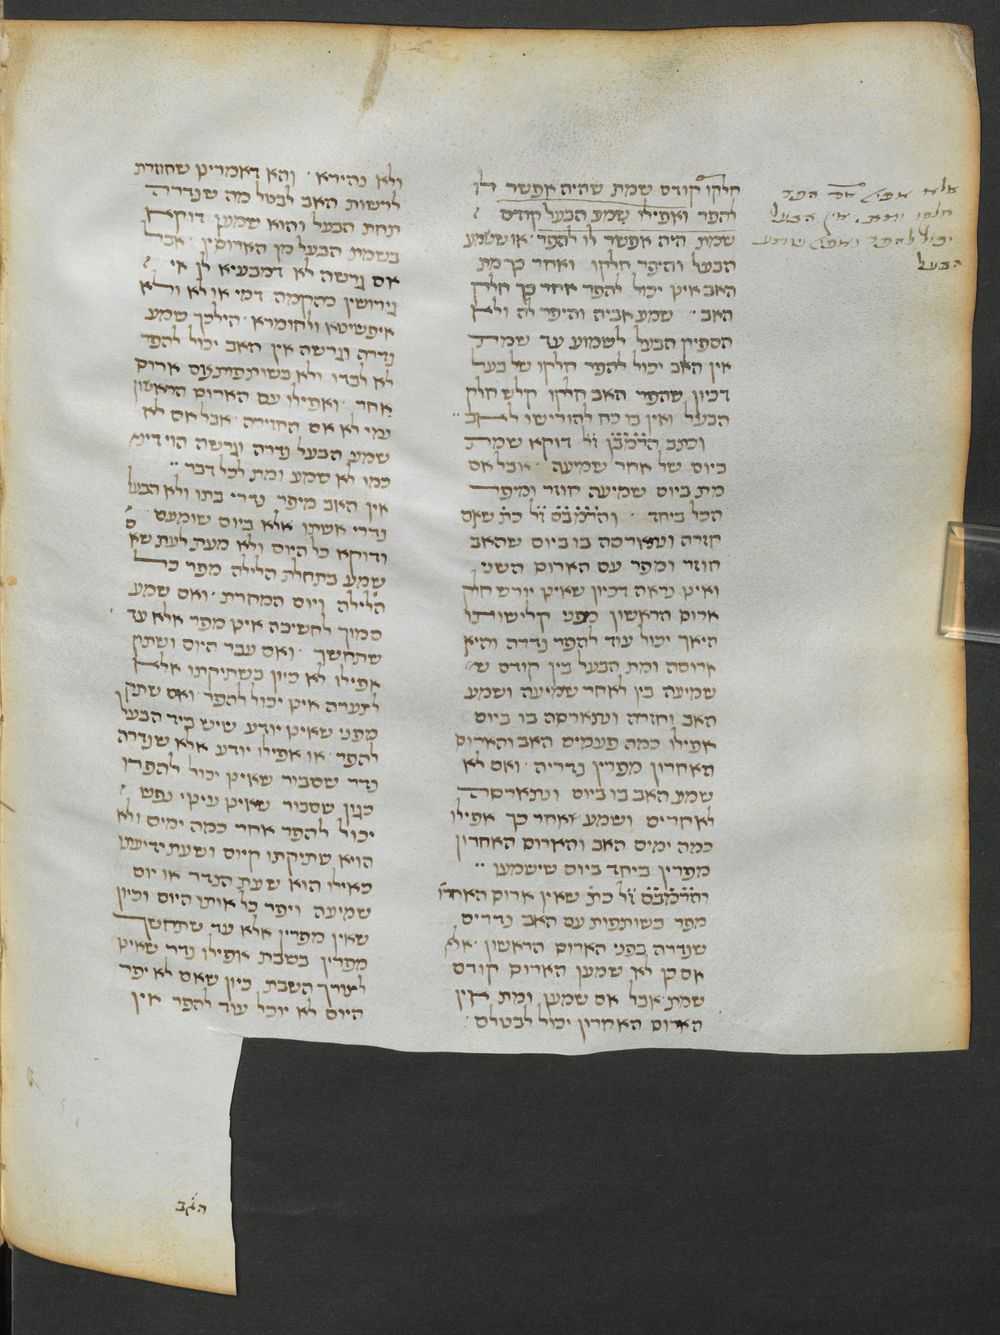 חלקו קודם שמת שהיה אפשר לו
להפר ואפילו שמע הבעל קודם
שמת היה אפשר לו להפר או ששמע
הבעל והיפר חלקו ואחר כך מת
האב אינו יכול להפר אחר כך חלק
האב שמע אביה והיפר לה ולא
הספיק הבעל לשמוע עד שמת
אין האב יכול להפר חלקו של בעל
דכיון שהפר האב חלקו קלש חלק
הבעל ואין בו כח להורישו לאב
וכתב הרמב״ן ז״ל דוקא שמת
ביום של אחר שמיעה אבל אם
מת ביום שמיעה חוזר ומיפר
הכל ביחד והרמב״ם ז״ל כת׳ שאם
חזרה ונתארסה בו ביום שהאב
חוזר ומפר עם הארוס השני
ואינו נראה דכיון שאינו יורש חלק
ארוס הראשון מפני קלישותו
היאך יכול עוד להפר נדרה והיא
ארוסה ומת הבעל בין קודם ש׳
שמיעה בין לאחר שמיעה ושמע
האב וחזרה ונתארסה בו ביום
אפילו כמה פעמים האב והארוס
האחרון מפרין נדריה ואם לא
שמע האב בו ביום ונתארסה
לאחרים ושמע אחר כך אפילו
כמה ימים האב והארוס האחרון
מפרין ביחד ביום שישמעו
והרמב״ם ז״ל כת׳ שאין ארוס האחרו׳
מפר בשותפות עם האב נדרים
שנדרה בפני הארוס הראשון אלא
אם כן לא שמען הארוס קודם
שמת אבל אם שמען ומת אין
הארוס האחרון יכול לבטלם
ולא נהירא והא דאמרינן שחוזרת
לרשות האב לבטל מה שנדרה
תחת הבעל והוא שמען דוקא
בשמת הבעל מן הארוסין אבל
אם גרשה לא דמבעיא לן אי
גירושין כהקמה דמי או לא ולא
איפשיטא ולחומרא הילכך שמע
נדרה וגרשה אין האב יכול להפר
לא לבדו ולא בשותפות עם ארוס
אחר ואפילו עם הארוס הראשון
נמי לא אם החזירה אבל אם לא
שמע הבעל נדרה וגרשה הוי דינו
כמו לא שמע ומת לכל דבר
אין האב מיפר נדרי בתו ולא הבעל
נדרי אשתו אלא ביום שומעם
ודוקא כל היום ולא מעת לעת שאם
שמע בתחלת הלילה מפר כל
הלילה ויום המחרת ואם שמע
סמוך לחשיכה אינו מפר אלא עד
שתחשך ואם עבר היום ושתק
אפילו לא כיון בשתיקתו אלא
לצערה אינו יכול להפר ואם שתק
מפני שאינו יודע שיש ביד הבעל
להפר או אפילו יודע אלא שנדרה
נדר שסבור שאינו יכול להפרו
כגון שסבור שאינו עינוי נפש
יכול להפר אחר כמה ימים ולא
הויא שתיקתו קיום ושעת ידיעתו
כאילו הוא שעת הנדר או יום
שמיעה ויפר כל אותו היום וכיון
שאין מפרין אלא עד שתחשך
מפרין בשבת אפילו נדר שאינו
לצורך השבת כיון שאם לא יפר
היום לא יוכל עוד להפר אין
אלא אפי׳ אם הפר
חלקו ומת אין הבעל
יכול להפר ואפי׳ שמע
הבעל